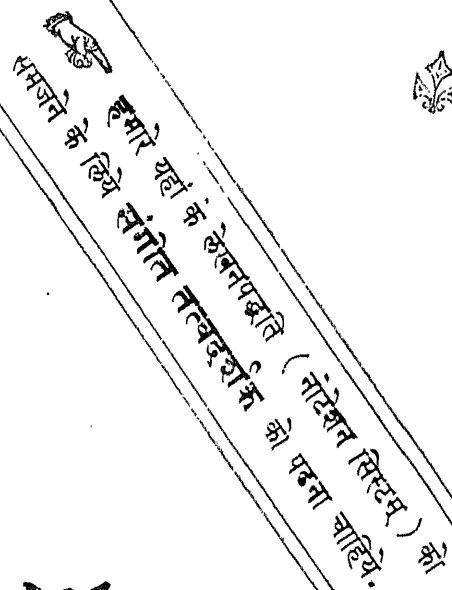 हमारे यहां के लेखनपद्धति ( नोटेशन सिस्टम् ) को
समजने के लिये संगीत तत्वदर्शक को पढना चाहिये.